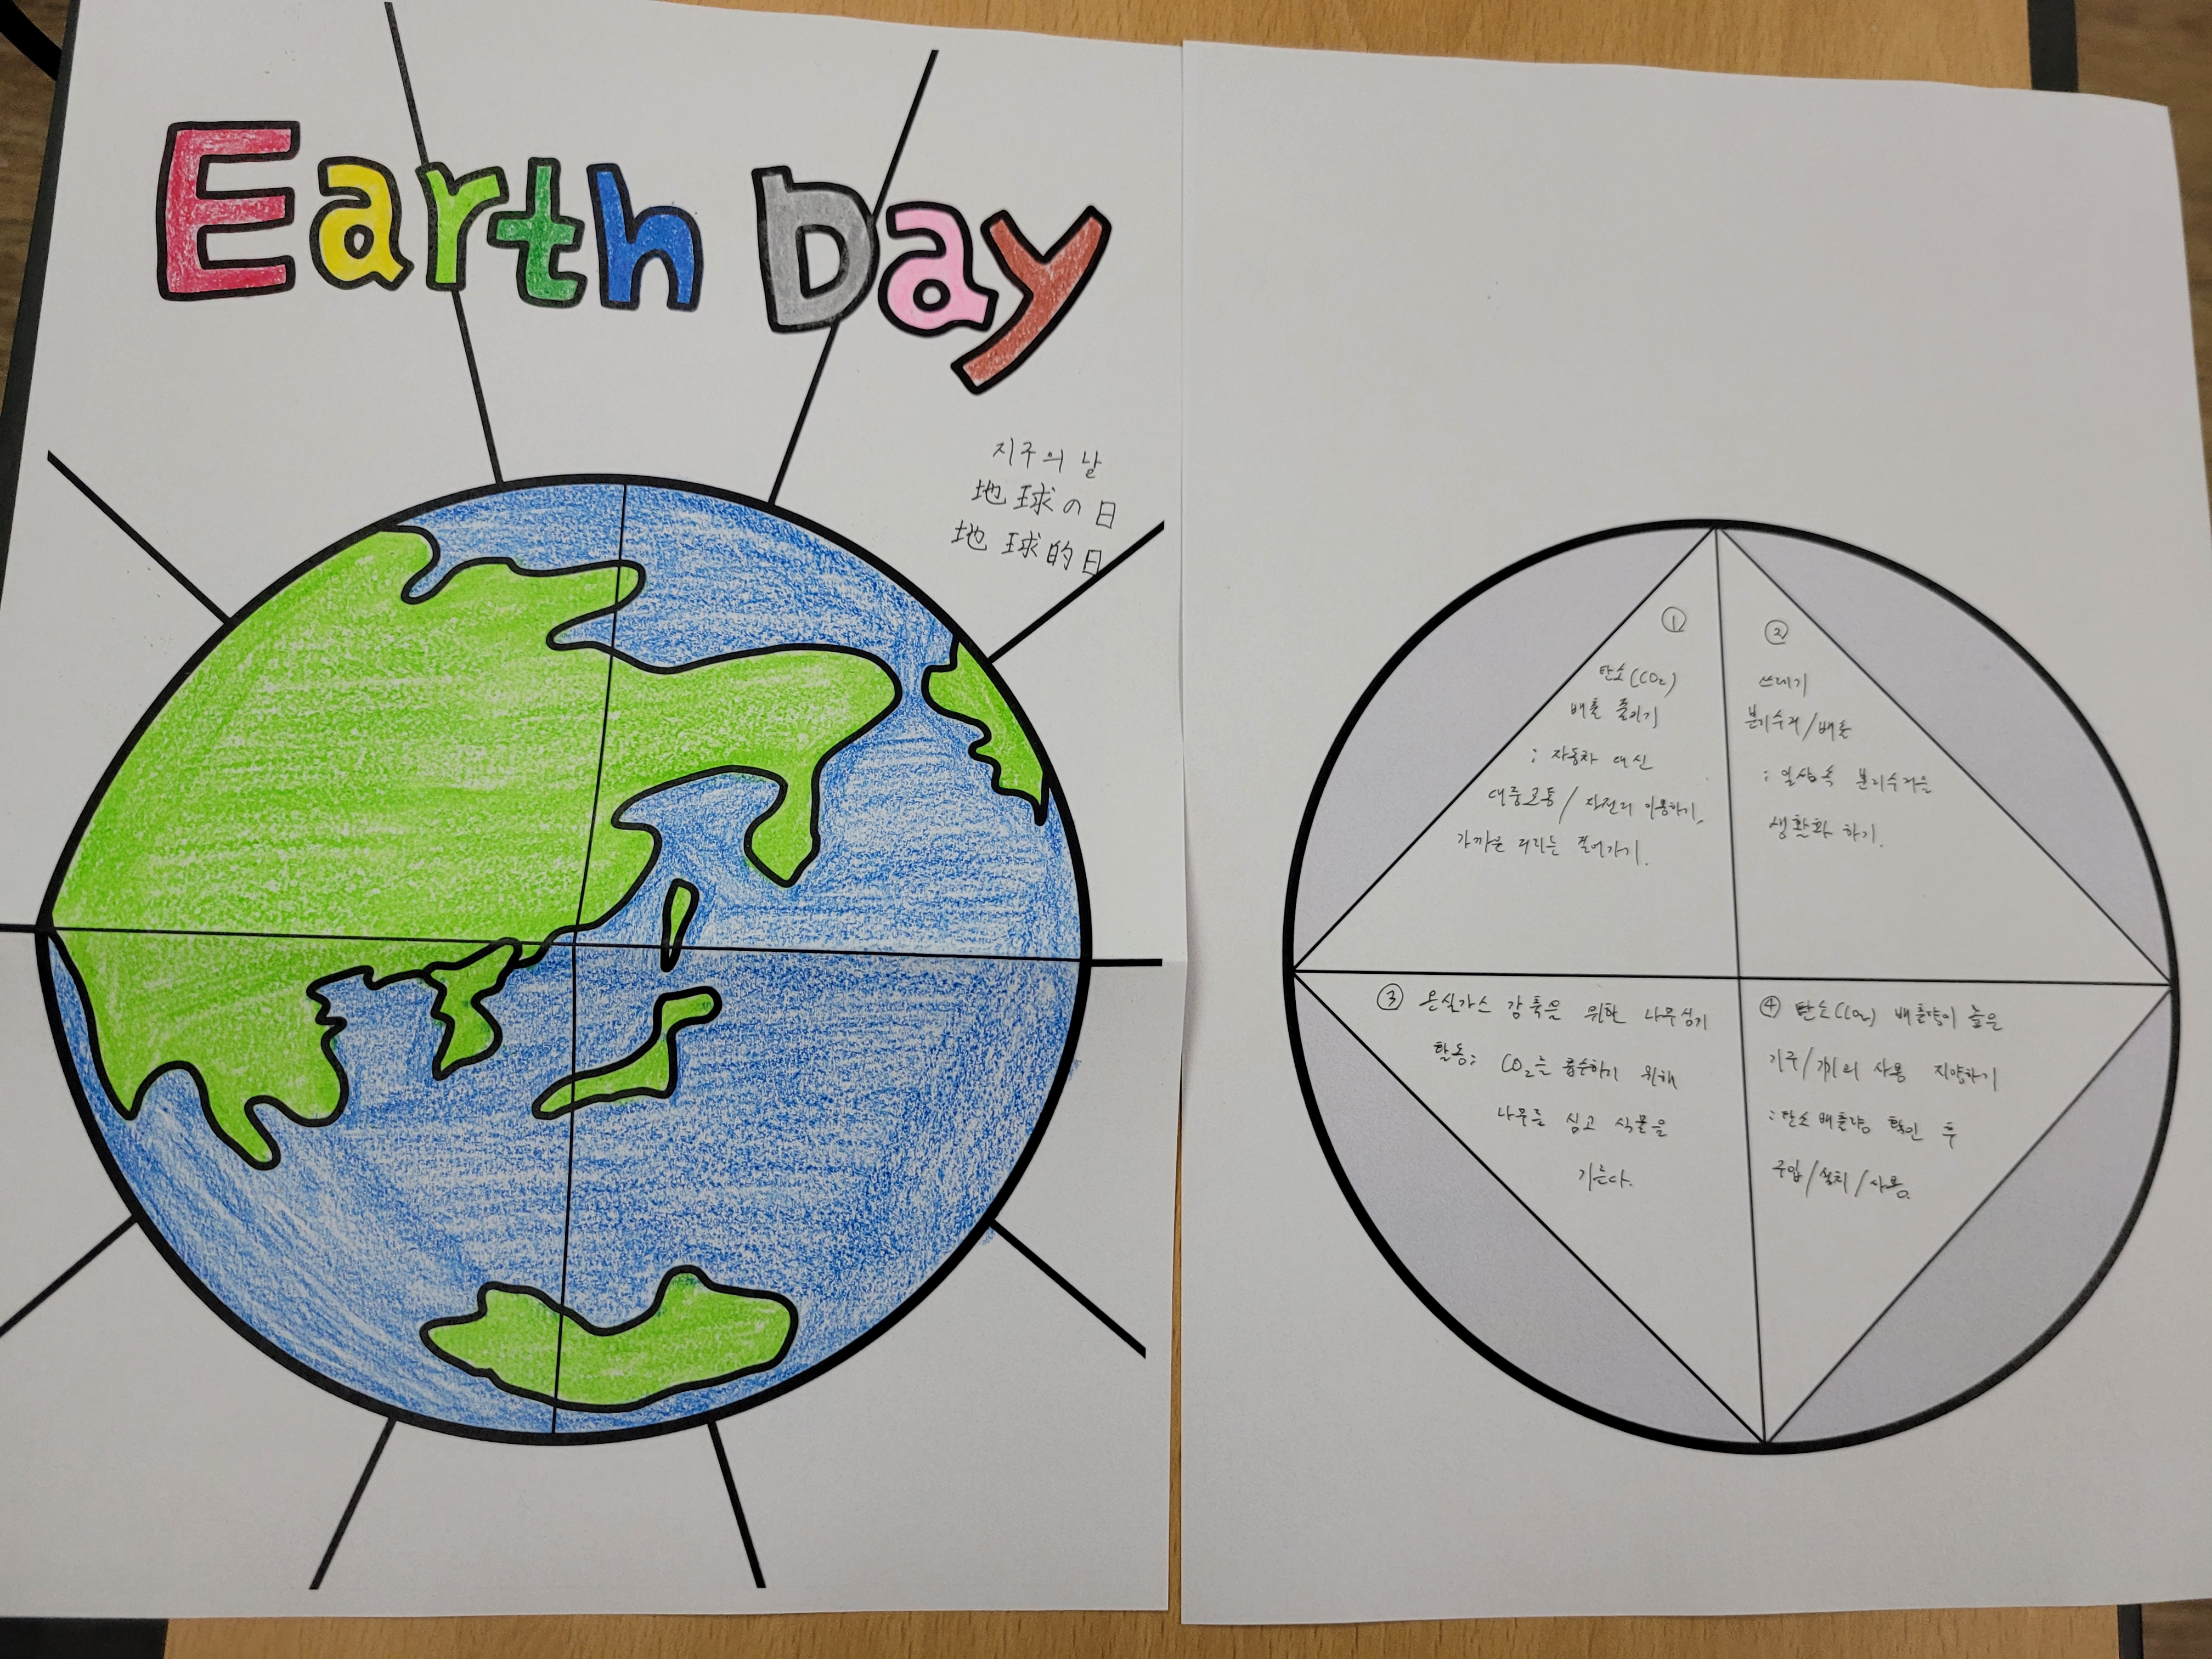 Earth Day
지구의 날
地球の日
地球的日
①
탄소(CO₂)
배출 줄이기
: 자동차 대신
대중교통/자전거 이용하기,
가까운 거리는 걸어가기.
②
쓰레기
분리수거/배출
: 일상속 분리수거를
생활화 하기.
③ 온실가스 감축을 위한 나무심기
활동: CO₂를 흡수하기 위해
나무를 심고 식물을
기른다.
④ 탄소(CO₂) 배출량이 높은
기구/기계 사용 지양하기
: 탄소 배출량 확인 후
구입/설치/사용.